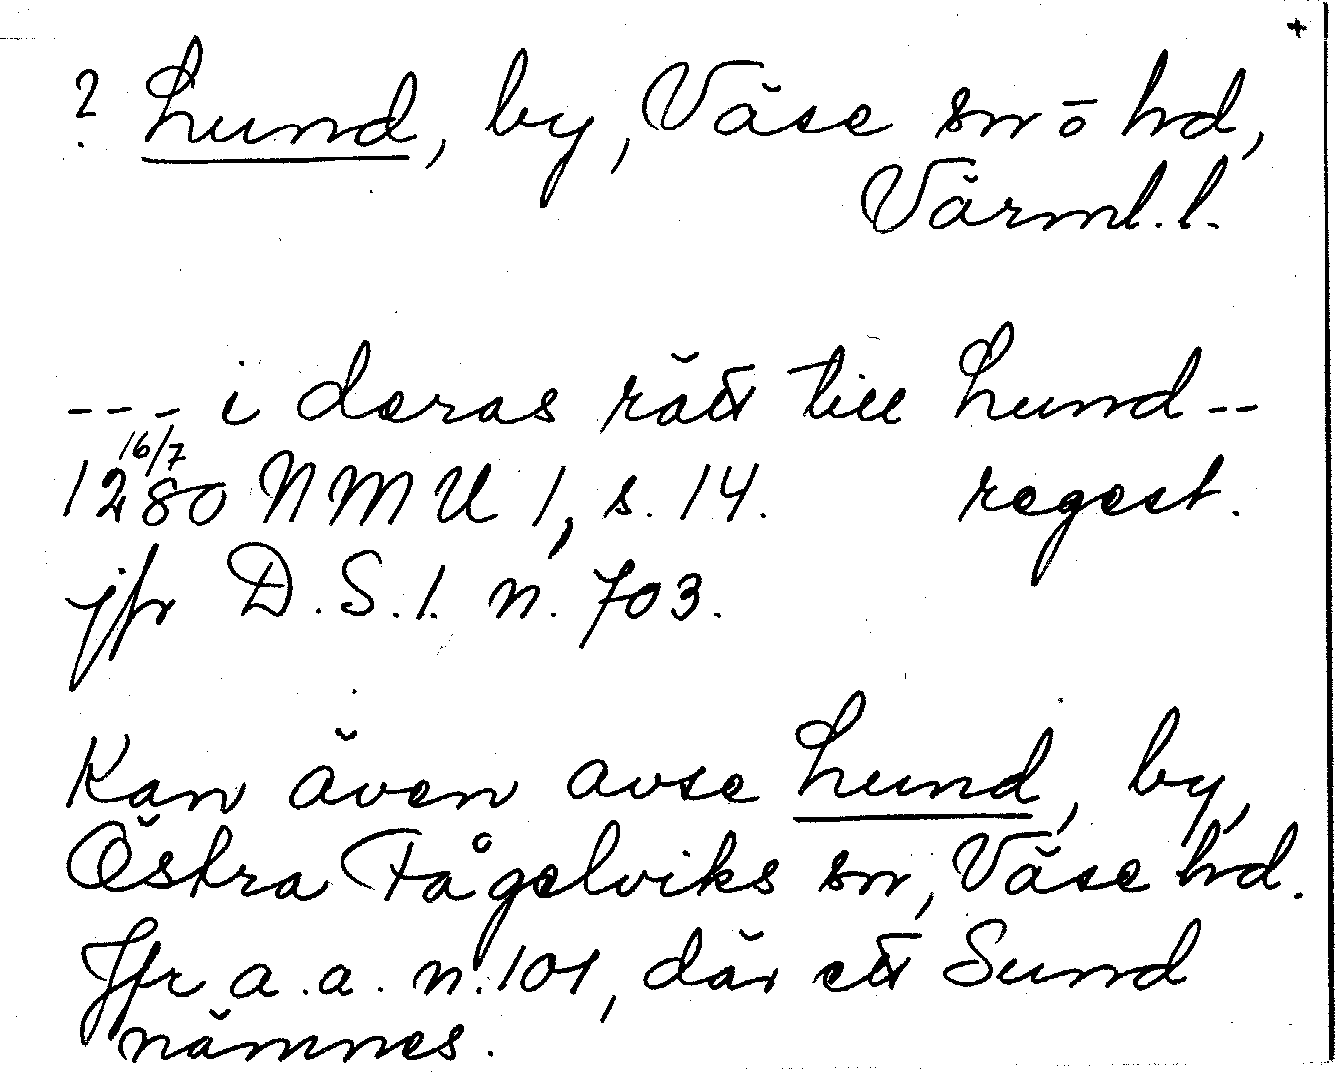 +
? Lund, by, Väse sn o hd,
Värml. l.
--- i deras rätt till Lund --
16/7
1280 NMU 1, s. 14. regest.
jfr D.S. 1. n. 703.
Kan även avse Lund, by,
Östra Fågelviks sn, Väse hd.
Jfr a.a. n. 101, där ett Sund
nämnes.